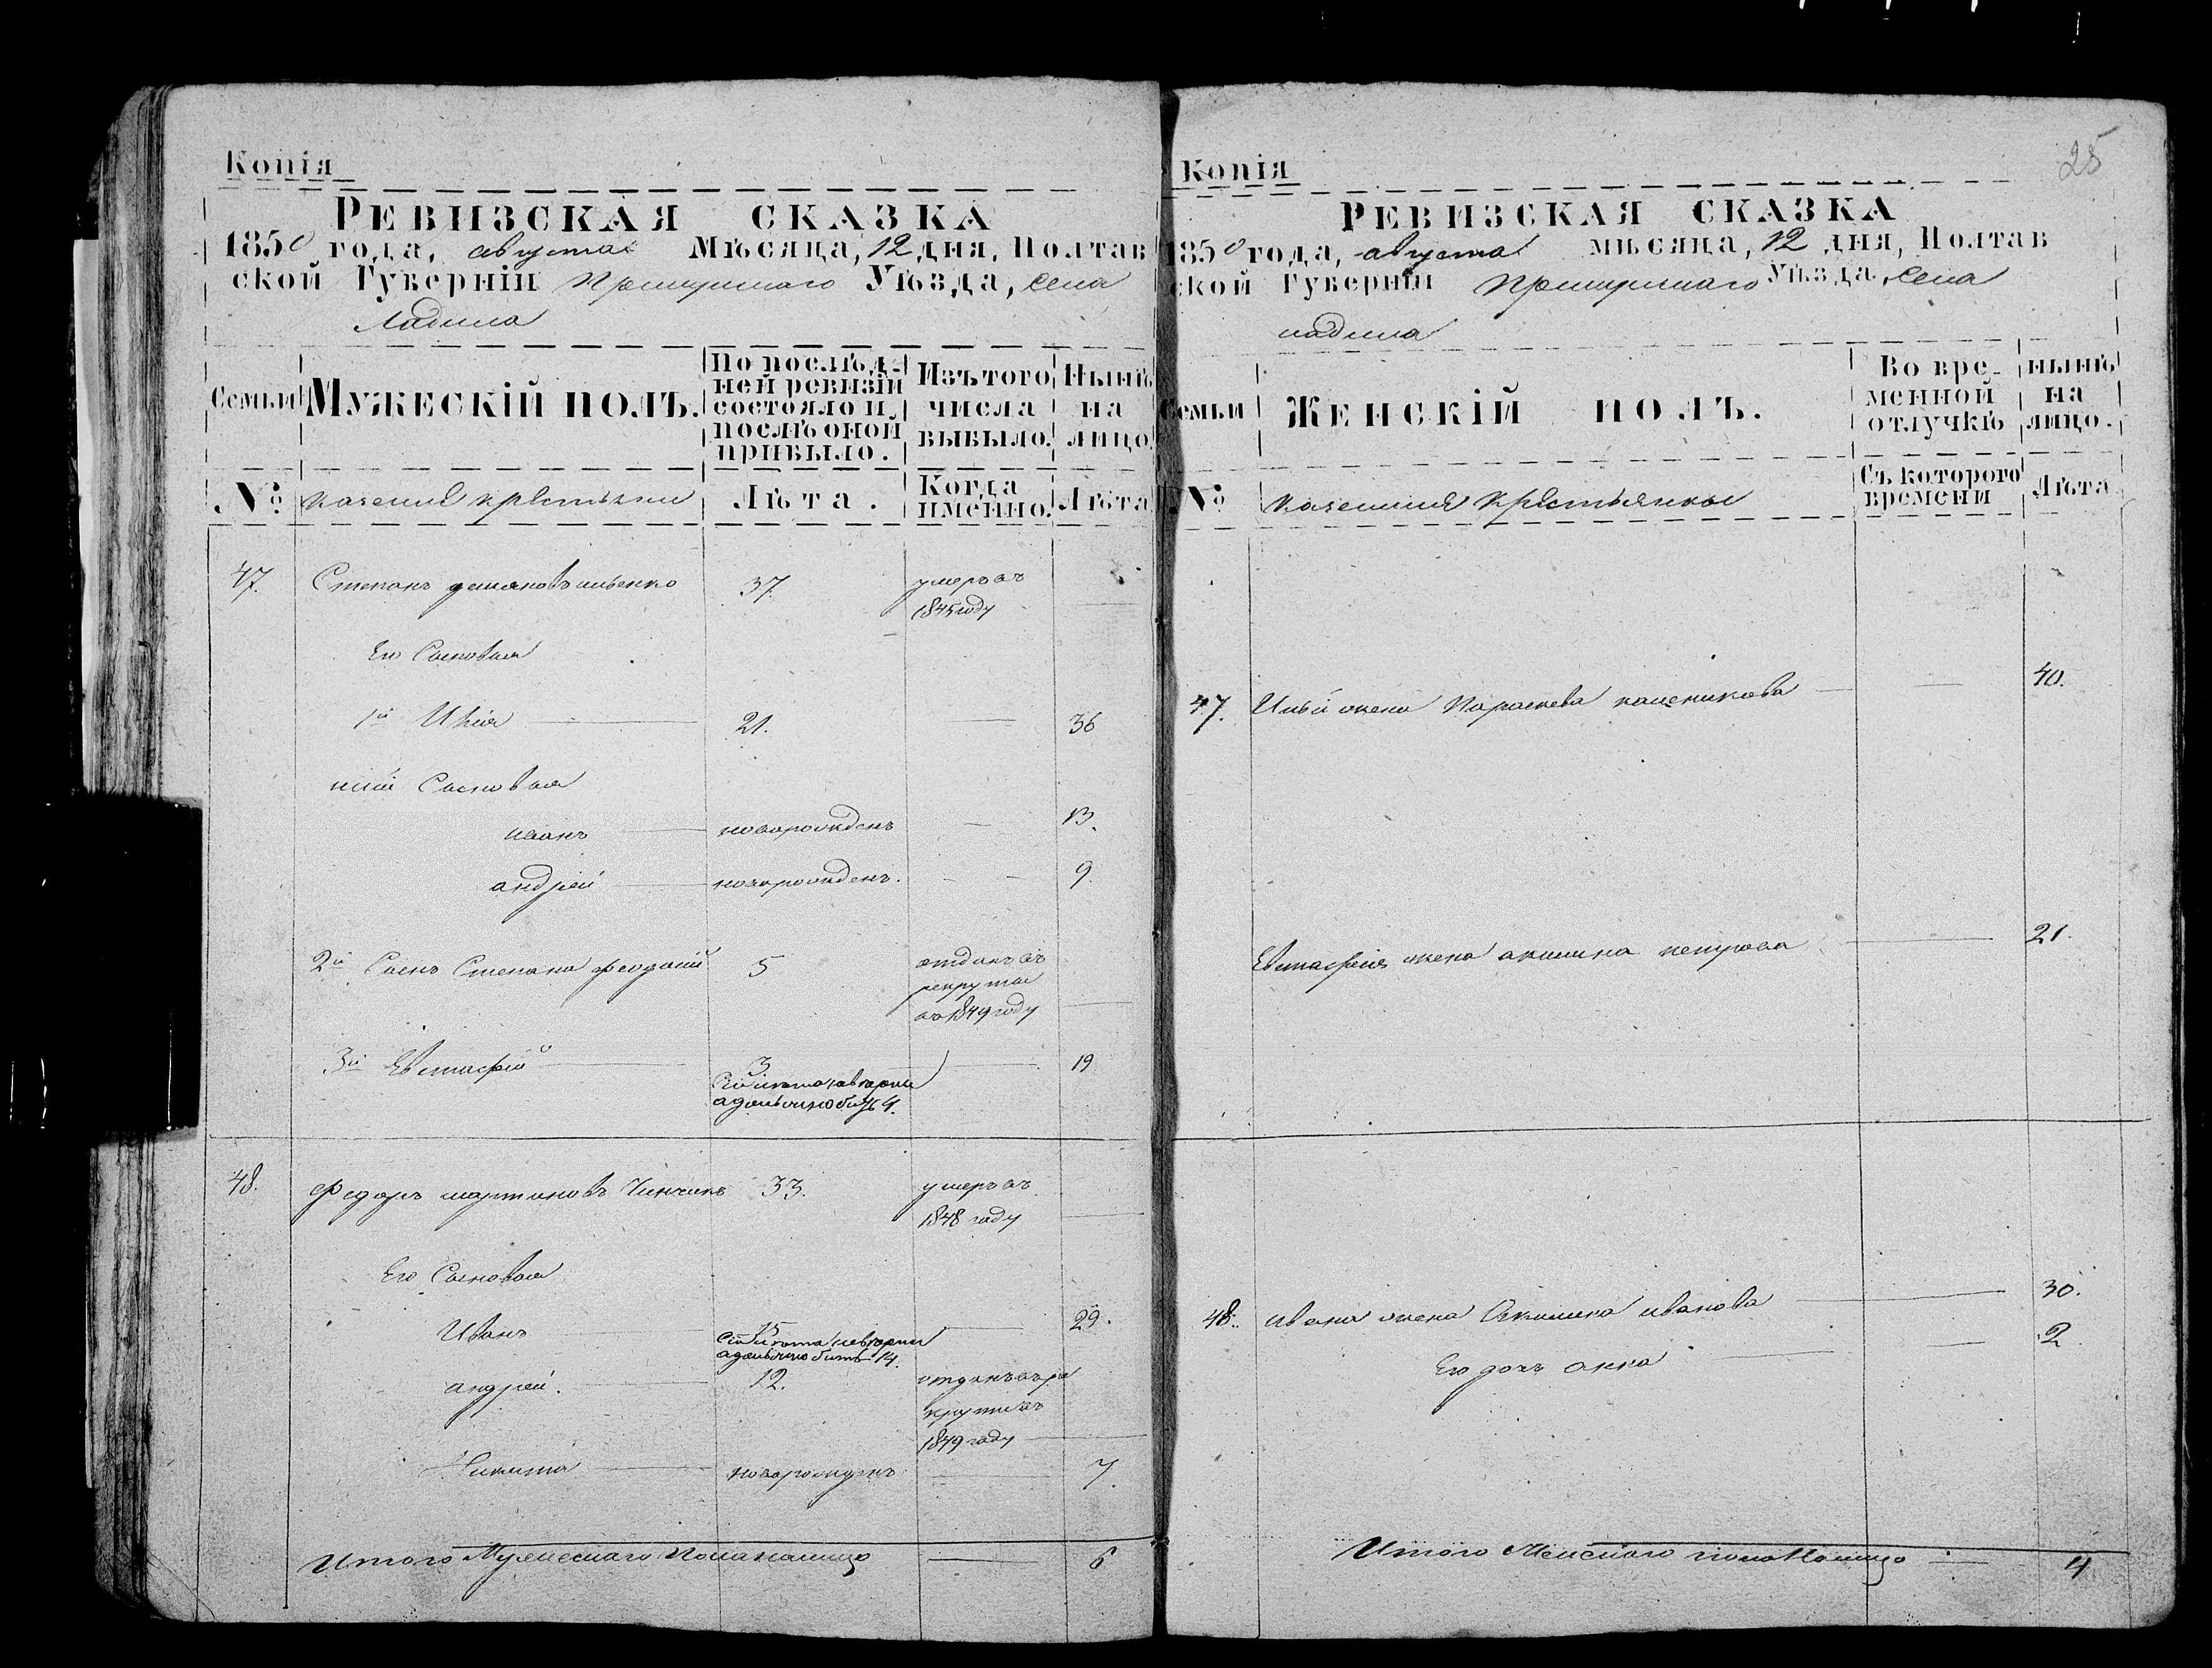 Копія
Ревизская сказка
1850 года, августа Мѣсяца, 12 дня, Полтав
ской Губерніи Прилуцкаго Уѣзда, села
Ладина
Семьи
Мужескій полъ.
По послѣд-
ней ревизіи
состояло и
послѣ оной
прибыло.
Изътого
числа
выбыло.
Нынѣ
на
лицо
№
казенніе крестьяни
Лѣта.
Когда
именно.
Лѣта
47. Степанъ 37. умеръ въ
1845 году
Его Сыновья
1й Илія 21. 36
иліи Сыновья
иванъ новорожденъ 13.
андрей новорожденъ. 9.
2й Сынъ Степана феодосій 5 отданъ въ
рекруты
въ 1849 году
3й Евстафій 3 19
Сіи лѣта невѣрни
а должно бить 4.
48. Федоръ мартиновъ Чинчикъ 33. умеръ въ
1848 году
Его Сыновья
Иванъ 15 29.
Сіи лѣта невѣрни
а должно бить 14.
андрей. 12. отданъ въ ре
круты въ
1849 году
Никита новорожденъ 7.
Итого Мужескаго Пола налицо 6
Копія
25
Ревизская сказка
1850 года, августа мѣсяца, 12 дня, Полтав
ской Губерніи Прилуцкаго Уѣзда, села
ладина
Семьи
Женскій полъ.
Во вре-
менной
отлучкѣ
нынѣ
на
лицо.
№
казенния крестьянки
Съ котораго
времени
Лѣта
47. Иліи жена Параскева 40.
Евстафія жена акилина петрова 21.
48. ивана жена Акилина иванова 30.
Его дочь анна 2
Итого Женскаго пола Налицо 4